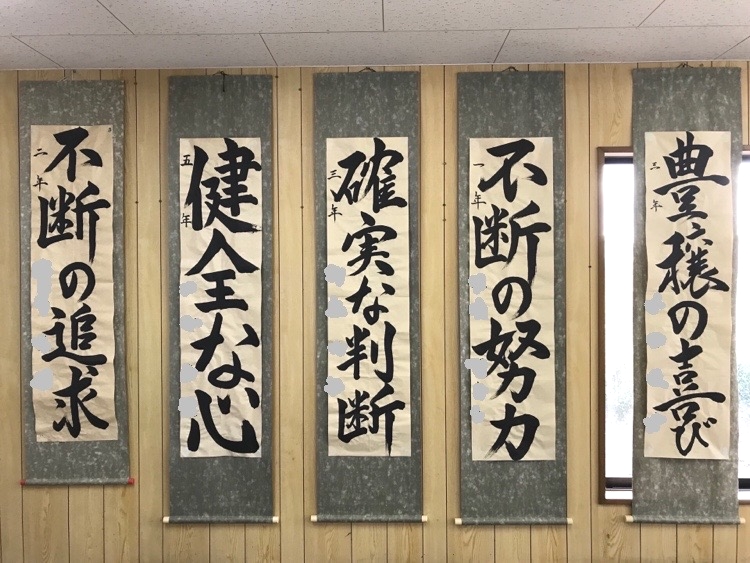 不断の追求
二年
健全な心
五年
確実な判断
三年
不断の努力
一年
豊穣の喜び
三年